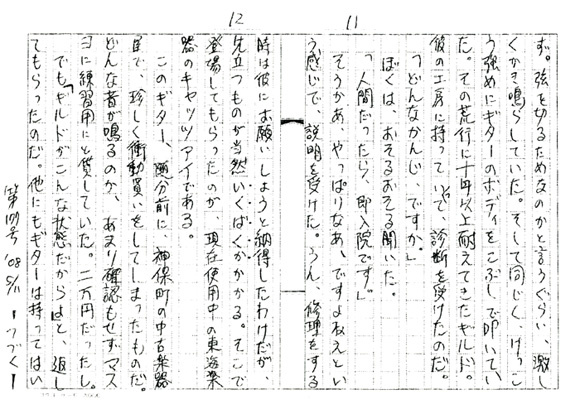 11
ず。弦を切るためなのかと言うぐらい、激し
くかき鳴らしていた。そして同じく、けっこ
う強めにギターのボディをこぶしで叩いてい
た。その荒行に十年以上耐えてきたギルド。
彼の工房に持って いって、診断を受けたのだ。
「どんなかんじ、ですか」
ぼくは、おそるおそる聞いた。
「人間だったら、即入院です」
そうかあ、やっぱりなあ、ですよねえとい
う感じで、説明を受けた。うん、修理をする
12
時は彼にお願いしようと納得したわけだが、
先立つものが当然いくばくかかかる。そこで
登場してもらったのが、現在使用中の東海楽
器のキャッツアイである。
このギター、随分前に、神保町の中古楽器
屋で、珍しく衝動買いをしてしまったものだ。
どんな音が鳴るのか、あまり確認もせずマス
ヨに練習用にと貸していた。二万円だったし。
でも「ギルドがこんな状態だから」と、返し
てもらったのだ。他にもギターは持ってはい
'08 5/11 ーつづくー